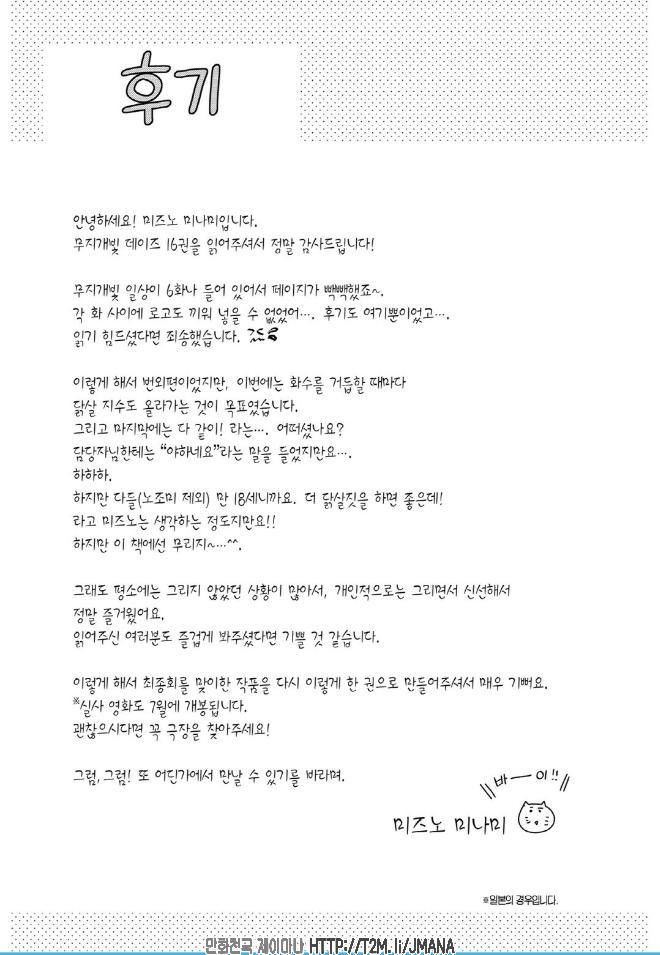 후기
안녕하세요! 미즈노 미나미입니다.
무지개빛 데이즈 16권을 읽어주셔서 정말 감사드립니다!
무지개빛 일상이 6화나 들어 있어서 페이지가 빽빽했죠~.
각 화 사이에 로고도 끼워 넣을 수 없었어…. 후기도 여기뿐이었고….
읽기 힘드셨다면 죄송했습니다.
이렇게 해서 번외편이었지만, 이번에는 화수를 거듭할 때마다
닭살 지수도 올라가는 것이 목표였습니다.
그리고 마지막에는 다 같이! 라는…. 어떠셨나요?
담당자님한테는 “야하네요”라는 말을 들었지만요….
하하하.
하지만 다들(노조미 제외) 만 18세니까요. 더 닭살짓을 하면 좋은데!
라고 미즈노는 생각하는 정도지만요!!
하지만 이 책에선 무리지~…^^.
그래도 평소에는 그리지 않았던 상황이 많아서, 개인적으로는 그리면서 신선해서
정말 즐거웠어요.
읽어주신 여러분도 즐겁게 봐주셨다면 기쁠 것 같습니다.
이렇게 해서 최종회를 맞이한 작품을 다시 이렇게 한 권으로 만들어주셔서 매우 기뻐요.
※실사 영화도 7월에 개봉됩니다.
괜찮으시다면 꼭 극장을 찾아주세요!
그럼, 그럼! 또 어딘가에서 만날 수 있기를 바라며.
바—이!!
미즈노 미나미
※일본의 경우입니다.
만화천국 제이마나 HTTP://T2M.li/JMANA